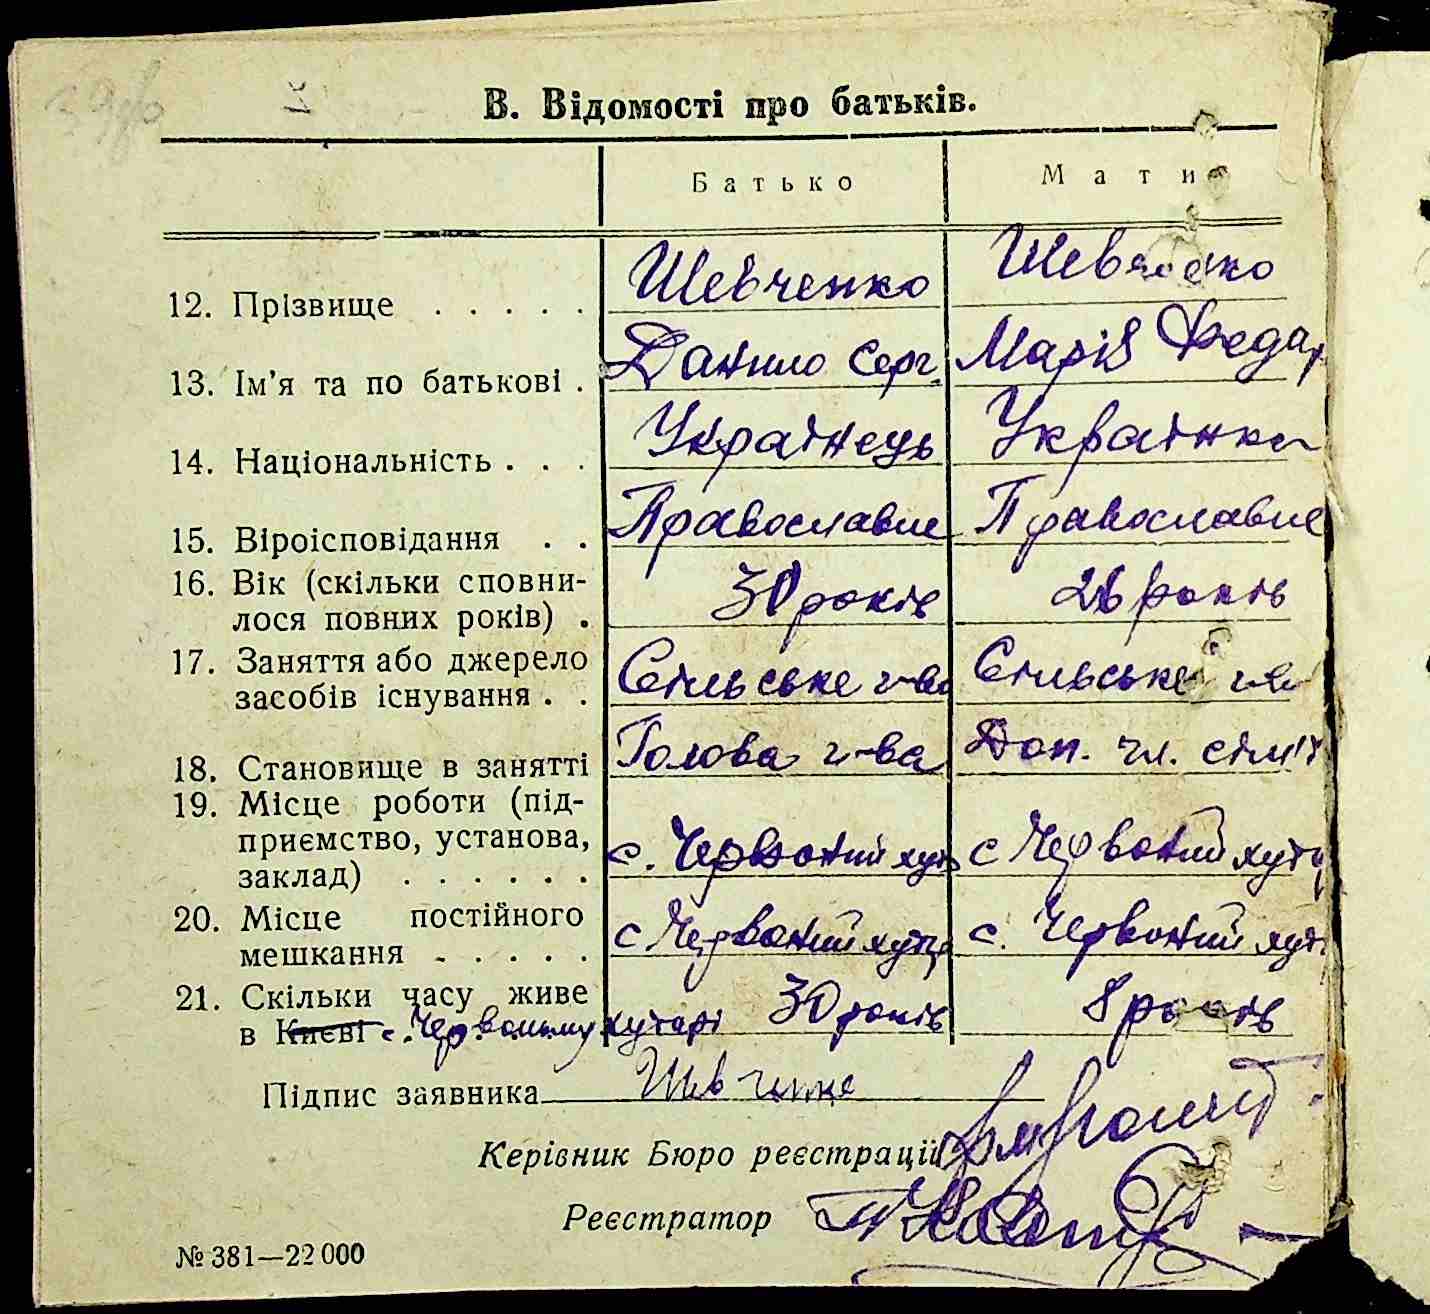 В. Відомості про батьків.
Батько Мати
12. Прізвище . . . . . Шевченко Шевченко
13. Ім'я та по батькові . Данило Серг. Марія Федор
14. Національність . . . Українець Українка
15. Віроісповідання . . Православне Православне
16. Вік (скільки сповни-
лося повних років) . 30 років 26 років
17. Заняття або джерело
засобів існування . . Сільське г-во Сільське г-во
18. Становище в занятті Голова г-ва Доп. чл. сім'ї
19. Місце роботи (під-
приємство, установа,
заклад) . . . . . . с. Червоний хут с Червоний хутр
20. Місце постійного
мешкання . . . . . с Червоний хутр с. Червоний хут.
21. Скільки часу живе
в Києві с. Червоному хуторі 30 років 8 років
Підпис заявника
Керівник Бюро реєстрації
Реєстратор
№ 381—22 000